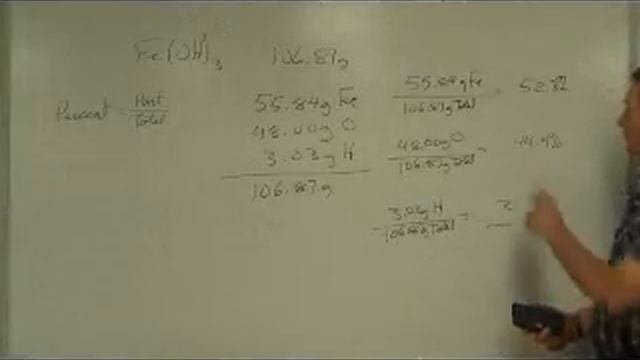 Fe(OH)3 106.87g
Percent = Part/Total
55.84g Fe
48.00g O
3.03g H
106.87g
55.84g Fe/106.87g Total = 52.32
48.00g O/106.87g Total = 44.9%
3.03g H/106.87g Total =